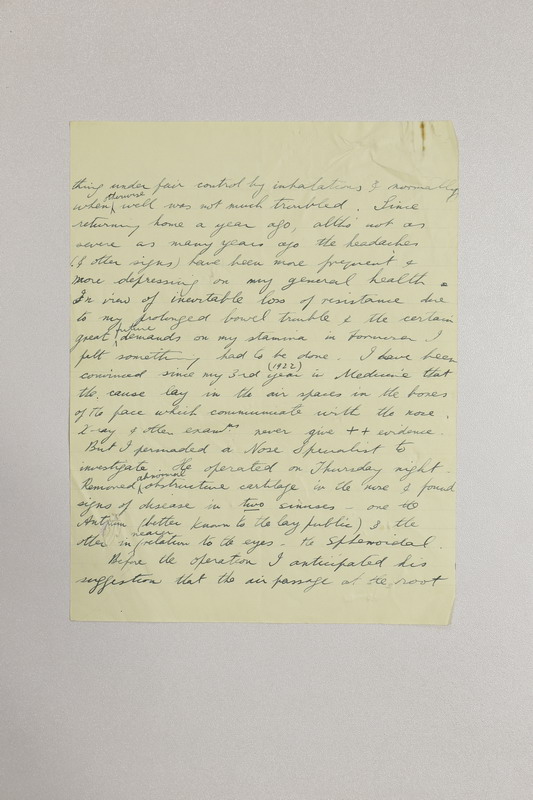 thing under fair control by inhalations & normally
when otherwise well was not much troubled. Since
returning home a year ago, altho not as
severe as many years ago the headaches
(& other signs) have been more frequent &
more depressing on my general health.
In view of inevitable loss of resistance due
to my prolonged bowel trouble & the certain
great future demands on my stamina in Formosa I
felt something had to be done. I have been
convinced since my 3rd year (1922) in Medicine that
the cause lay in the air spaces in the bones
of the face which communicate with the nose.
X-ray & other exam^ns never give ++ evidence.
But I persuaded a Nose Specialist to
investigate. He operated on Thursday night.
Removed abnormal obstructive cartilage in the nose & found
signs of disease in two sinuses - one the
Antrum (better known to the lay public) & the
other in nearer relation to the eyes - the Sphenoidal.
Before the operation I anticipated his
suggestion that the air passage at the root